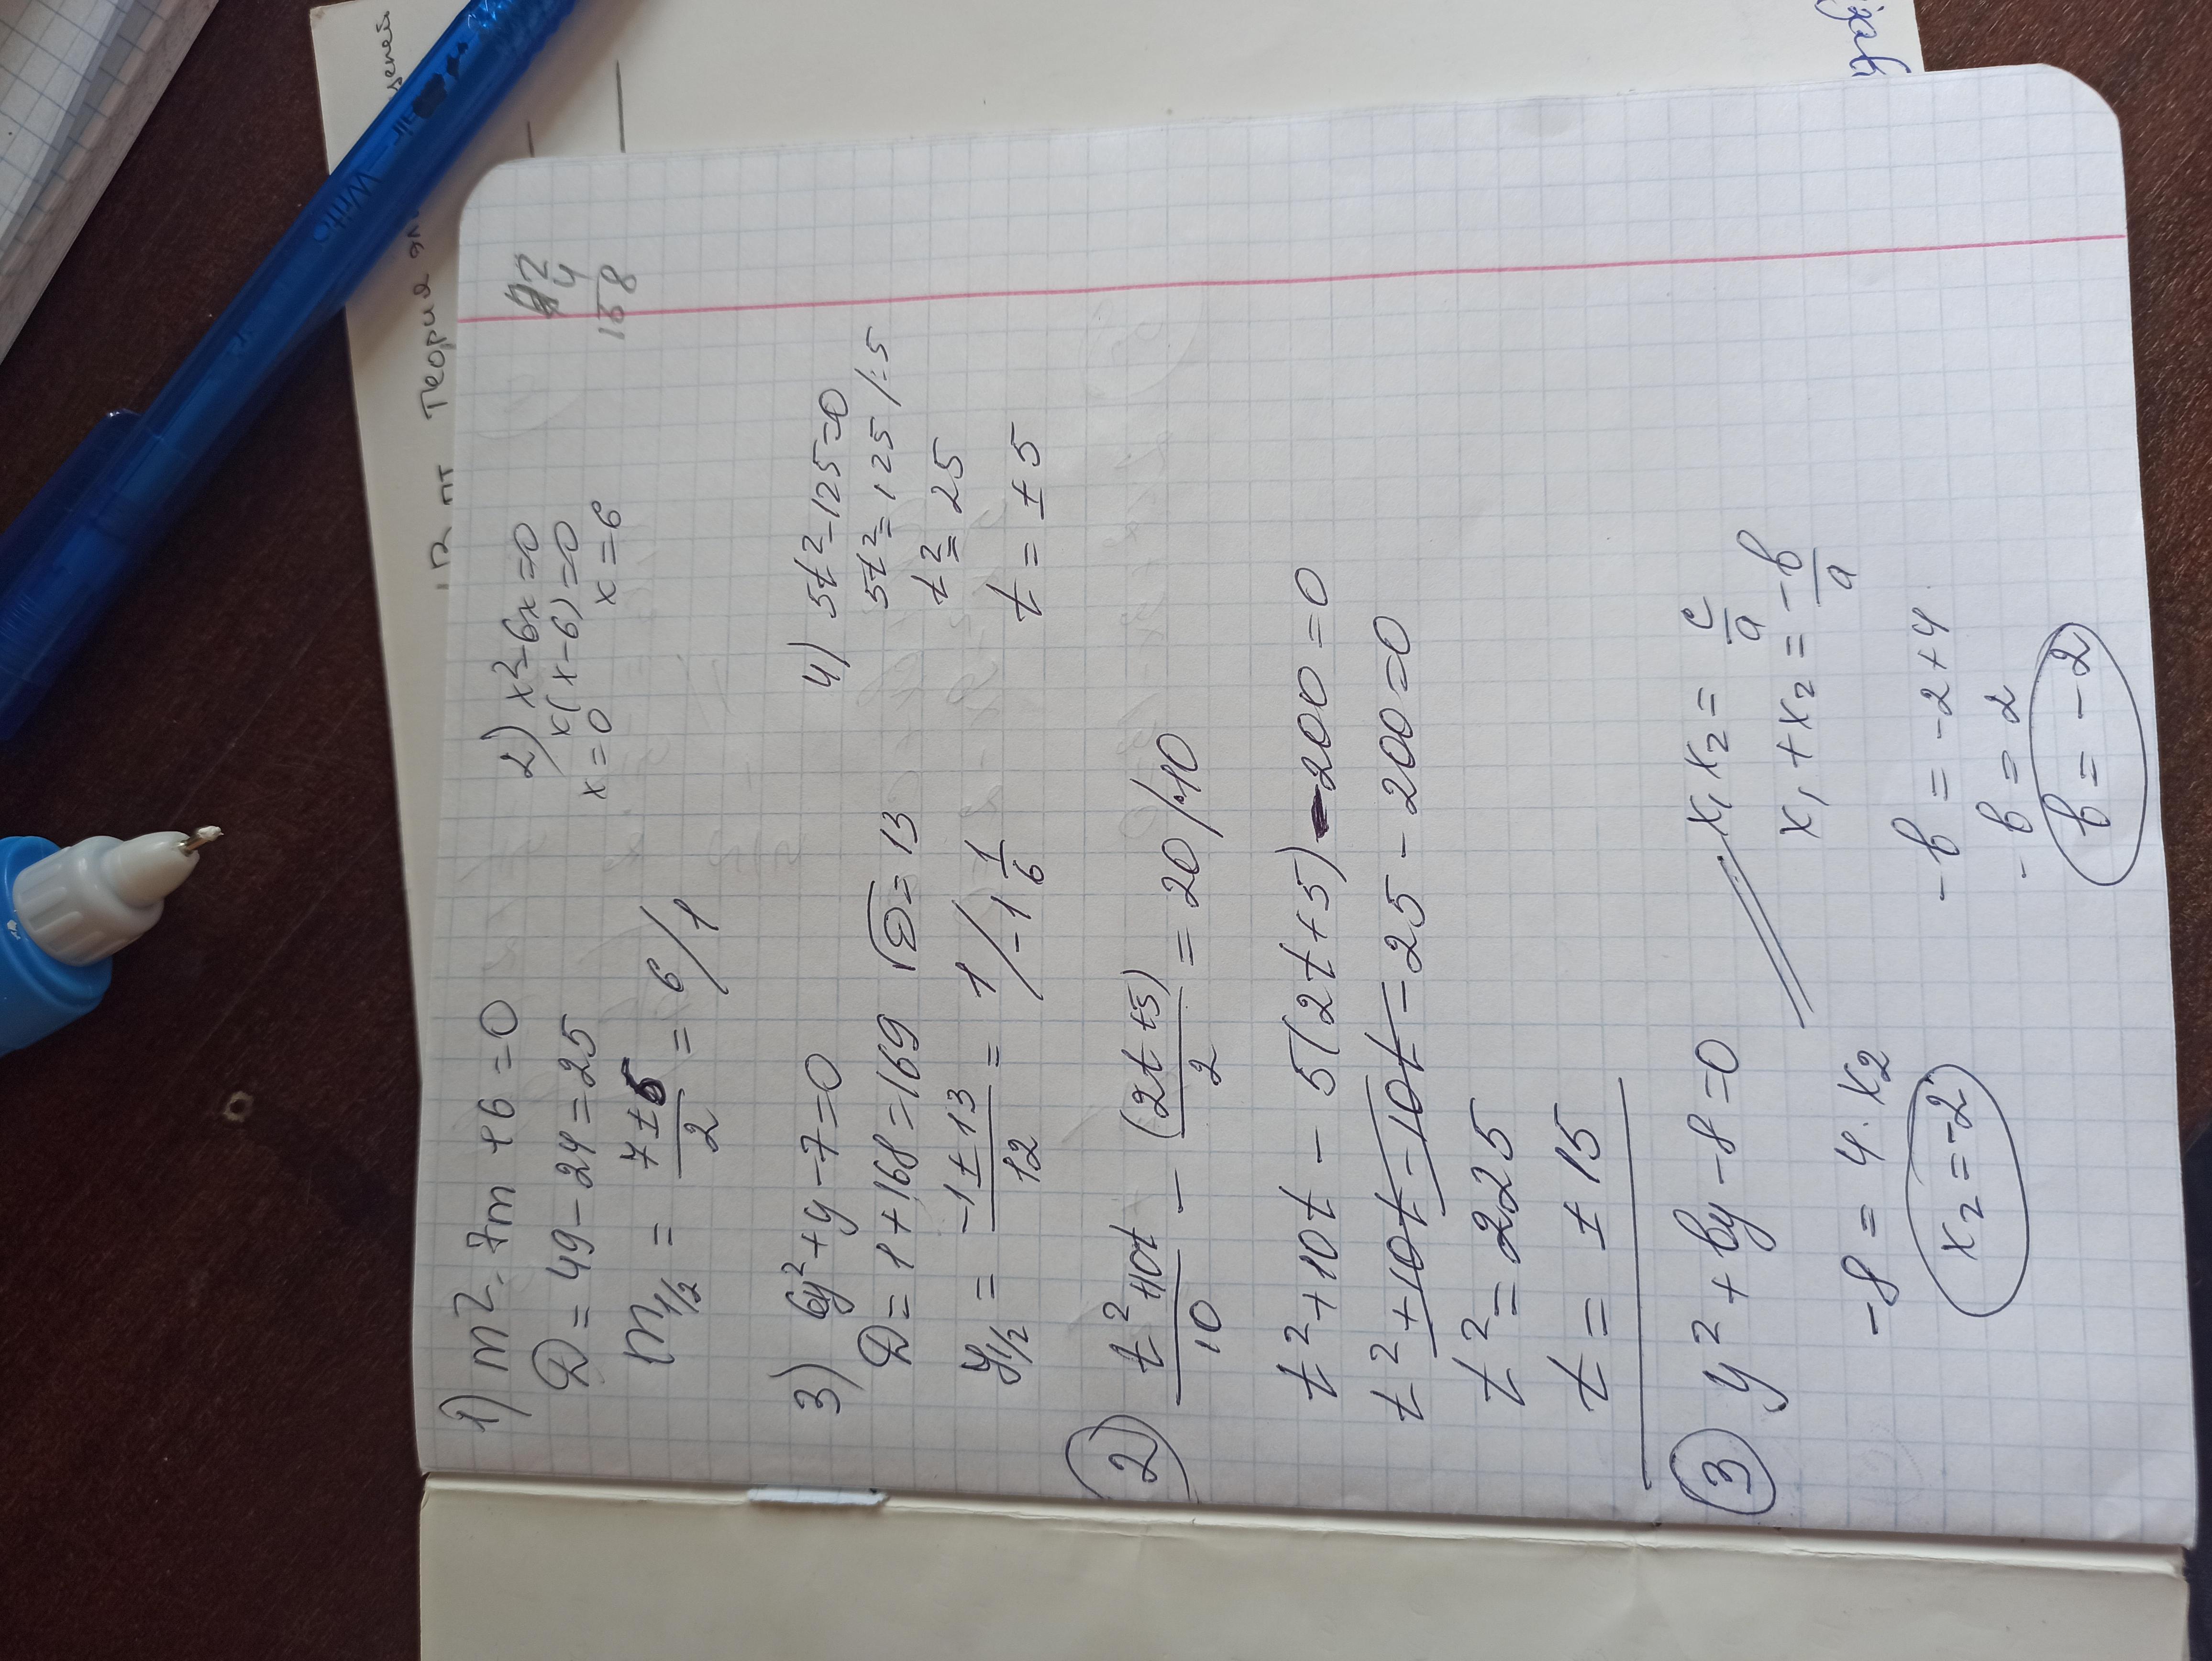 1) m² - 7m + 6 = 0
D = 49 - 24 = 25
m₁/₂ = (7 ± 5)/2 = 6 / 1
2) x² - 6x = 0
x(x - 6) = 0
x = 0 x = 6
42
4
168
3) 6y² + y - 7 = 0
D = 1 + 168 = 169 √D = 13
y₁/₂ = (-1 ± 13)/12 = 1 / -1 1/6
4) 5t² - 125 = 0
5t² = 125 /:5
t² = 25
t = ± 5
2) (t² + 10t)/10 - (2t + 5)/2 = 20 /·10
t² + 10t - 5(2t + 5) - 200 = 0
t² + 10t - 10t = 25 - 200 = 0
t² = 225
t = ± 15
3) y² + by - 8 = 0
-8 = 4 · x₂
x₂ = -2
x₁ x₂ = c/a
x₁ + x₂ = -b/a
-b = -2 + 4
-b = 2
b = -2
Теория
Write